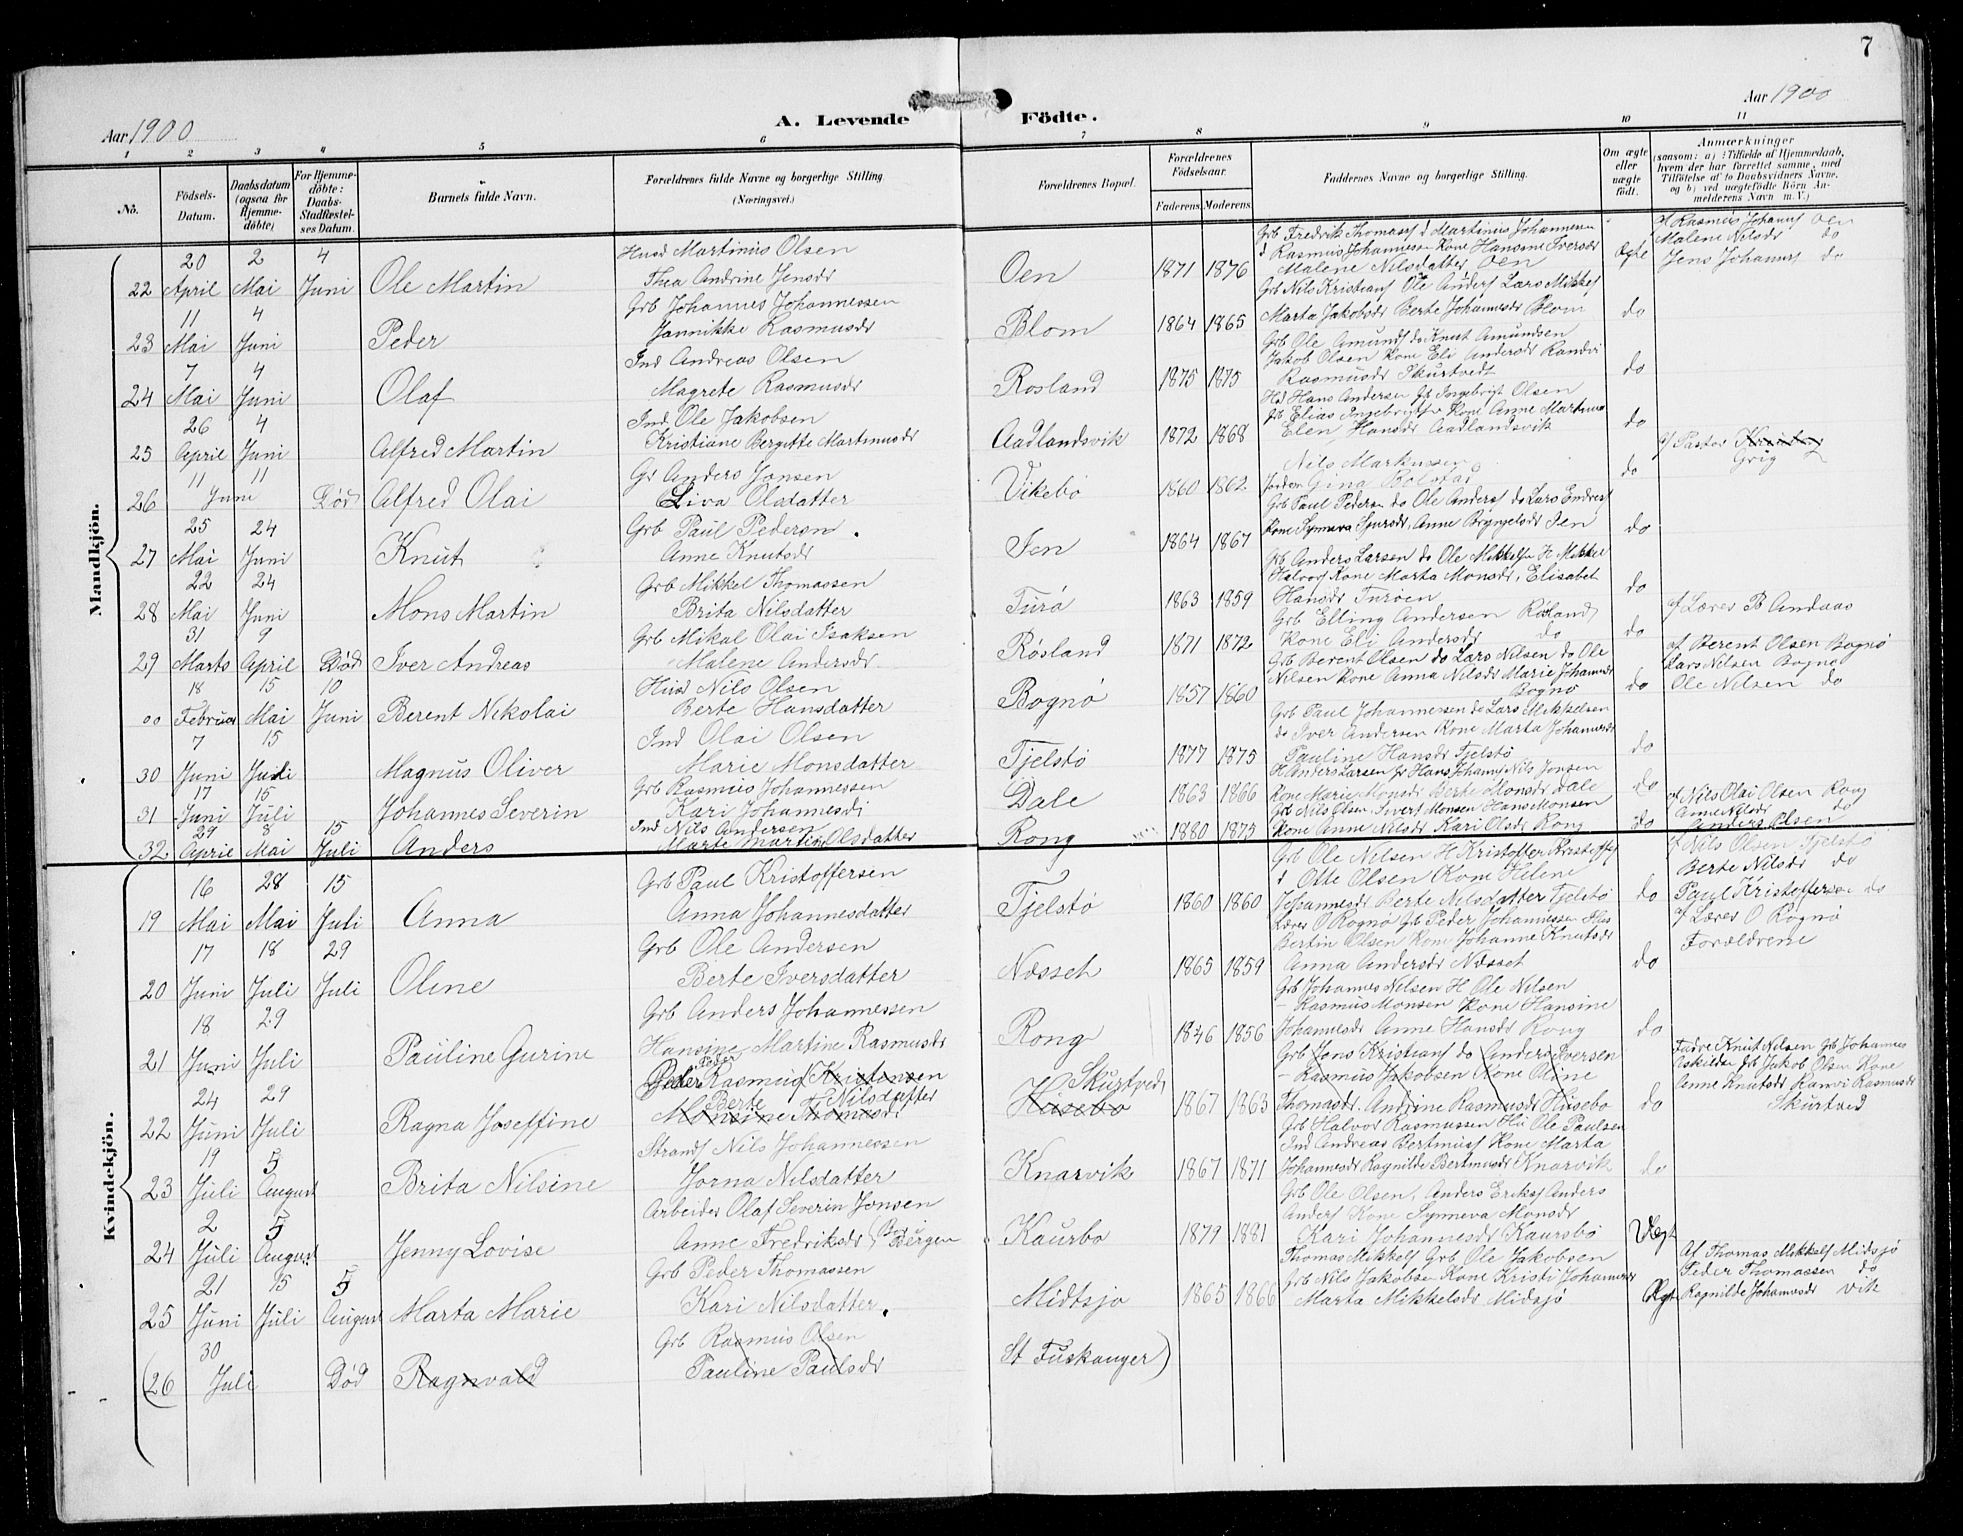 7
Aar 1900
A. Levende Födte.
Aar 1900
1 2 3 4 5 6 7 8 9 10 11
No.
Födsels-Datum.
Daabsdatum (ogsaa for Hjemme-döbte)
For Hjemme-döbte: Daabs-Stadfæstel-ses Datum.
Barnets fulde Navn.
Forældrenes fulde Navne og borgerlige Stilling. (Næringsvei.)
Forældrenes Bopæl.
Forældrenes Födselsaar.
Faderens. Moderens.
Faddernes Navne og borgerlige Stilling.
Om ægte eller uægte födt.
Anmærkninger
(saasom: a) i Tilfælde af Hjemmedaab, hvem der har forrettet samme, med Tilföielse af to Daabsvidners Navne, og b) ved uægtefödte Börn An-melderens Navn m. V.)
Mandkjön.
22 20 April 2 Mai 4 Juni Ole Martin
Husd Martinus Olsen
Thea Andrine Jensdr
Oen 1871 1876
Grb Fredrik Thomass d Martinus Johannessen
d Rasmus Johannessen Kone Hansine Iversdr
Malene Nilsdatter Oen
Ægte
af Rasmus Johanns Oen
Malene Nilsdr do
Jens Johanns do
23 11 Mai 4 Juni Peder
Grb Johannes Johannessen
Jannikke Rasmusdr
Blom 1864 1865
Grb Nils Kristians Ole Anders Lars Mikkels
Marta Jakobsdr Berte Johannesdr Blom
do
24 7 Mai 4 Juni Olaf
Ind Andreas Olsen
Magrete Rasmusdr
Rosland 1875 1875
Grb Ole Amunds do Knut Amundsen
Jakob Olsen Kone Eli Andersdr Randvi
Rasmusdr Skurtvedt
do
25 26 April 4 Juni Alfred Martin
Ind Ole Jakobsen
Kristiane Bergitte Martinusdr
Aadlandsvik 1872 1868
Hd Hans Andersen Ingebrigt Olsen
Grb Elias Ingebrigts Kone Anne Martinus
Elen Hansdr Aadlandsvik
do
26 11 11 Juni Död Alfred Olai
Gr Anders Jonsen
Liva Olsdatter
Vikebö 1860 1862
Nils Markussen
Jordm Gina Bolstad
do
af Pastor Grig
27 25 Mai 24 Juni Knut
Grb Paul Pedersen
Anne Knutsdr
Ten 1864 1867
Grb Paul Pedersen do Ole Anders do Lars Endres
Kone Synneva Sjursdr, Anne Bryngelsdr Ten
do
28 22 Mai 24 Juni Mons Martin
Grb Mikkel Thomassen
Brita Nilsdatter
Turö 1863 1859
Grb Anders Larsen do Ole Mikkels H Mikkel
Halvors Kone Marta Monsdr, Elisabet
Hansdr Turöen
do
29 31 Marts 9 April Död Iver Andreas
Grb Mikal Olai Isaksen
Malene Andersdr
Rösland 1871 1872
Grb Elling Andersen Rösland
Kone Eli Andersdr do
do
af Lærer B Andaas
00 18 Februar 15 Mai 10 Juni Berent Nikolai
Husd Nils Olsen
Berte Hansdatter
Bognö 1857 1860
Grb Berent Olsen do Lars Nilsen do Ole
Nilsen Kone Anna Nilsdr Marie Johannsdr
Bognö
do
af Berent Olsen Bognö
Lars Nilsen Bognö
Ole Nilsen do
30 7 Juni 15 Juli Magnus Oliver
Ind Olai Olsen
Marie Monsdatter
Tjelstö 1877 1875
Grb Paul Johannessen do Lars Mikkelsen
do Iver Andersen Kone Marta Johannesdr
Pauline Hansdr Tjelstö
do
31 17 Juni 15 Juli Johannes Severin
Grb Rasmus Johannessen
Kari Johannesdr
Dale 1863 1866
H Anders Larsen Hans Johanns Nils Jonsen
Kone Marie Monsdr Berte Monsdr Dale
do
32. 29 April 8 Mai 15 Juli Anders
Ind Nils Andersen
Marte Martine Olsdatter
Rong 1880 1875
Grb Nils Olsen Sivert Monsen Hans Monsen
Kone Anne Nilsdr Kari Olsdr Rong
do
af Nils Olai Olsen Rong
Anne Nilsdr do
Anders Olsen
Kvindekjön.
19 16 Mai 28 Mai 15 Juli Anna
Grb Paul Kristoffersen
Anna Johannesdatter
Tjelstö 1860 1860
Grb Ole Nilsen H Kristoffer Kristoffs
d Otte Olsen Kone Helene
Johannesdr Berte Nilsdatter Tjelstö
do
af Nils Olsen Tjelstö
Berte Nilsdr do
Paul Kristoffersen do
20 17 Juni 18 Juli 29 Juli Oline
Grb Ole Andersen
Berte Iversdatter
Næsset 1865 1859
Lærer O Rognö Grb Peder Johannessen Hus
Bertin Olsen Kone Johanne Knutsdr
Anna Andersdr Næsset
do
af Lærer O Rognö
Forældrene
21 18 Juni 29 Juli Pauline Gurine
Grb Anders Johannessen
Hansine Martine Rasmusdr
Rong 1846 1856
Grb Johannes Nilsen H Ole Nilsen
- Rasmus Monsen Kone Hansine
Johannesdr Anne Hansdr Rong
do
22 24 Juni 29 Juli Ragna Joseffine
Peder Rasmus Kristensen
Berte Nilsdatter
Monsine Thomasdr
Skurtvedt
Husebö 1867 1863
Grb Jons Kristians do Anders Iversen
- Rasmus Jakobsen Kone Oline
Thomasdr. Andrine Rasmusdr Husebö
do
Fadre Knut Nilsen Grb Johannes
Askildsen Grb Jakob Olsen Kone
Anne Knutsdr Ranvi Rasmusdr
Skurtved
23 19 Juli 5 August Brita Nilsine
Strands Nils Johannessen
Jorna Nilsdatter
Knarvik 1867 1871
Grb Halvor Rasmussen Hu Ole Paulsen
Ind Andreas Bertinus Kone Marta
Johannesdr Ragnilde Bertinusdr Knarvik
do
24 2 Juli 5 August Jenny Lovise
Arbeider Olaf Severin Jonsen
Anne Fredriksdr (Bo i Bergen
Kaurbo 1879 1881
Grb Ole Olsen, Anders Eriks Anders
Anders Kone Synneva Monsdr
Kari Johannesdr Kaursbö
Uægt
25 21 Juni 15 Juli 5 August Marta Marie
Grb Peder Thomassen
Kari Nilsdatter
Midtsjo 1865 1866
Thomas Mikkels Grb Ole Jakobsen
Grb Nils Jakobsen Kone Kristi Johannesdr
Marta Mikkelsdr Midsjö
Ægt
Af Thomas Mikkels Midtsjö
Peder Thomassen do
Ragnilde Johannesdr Vik
(26 30 Juli Död Ragnvald
Grb Rasmus Olsen
Pauline Paulsdr
St Tuskanger)